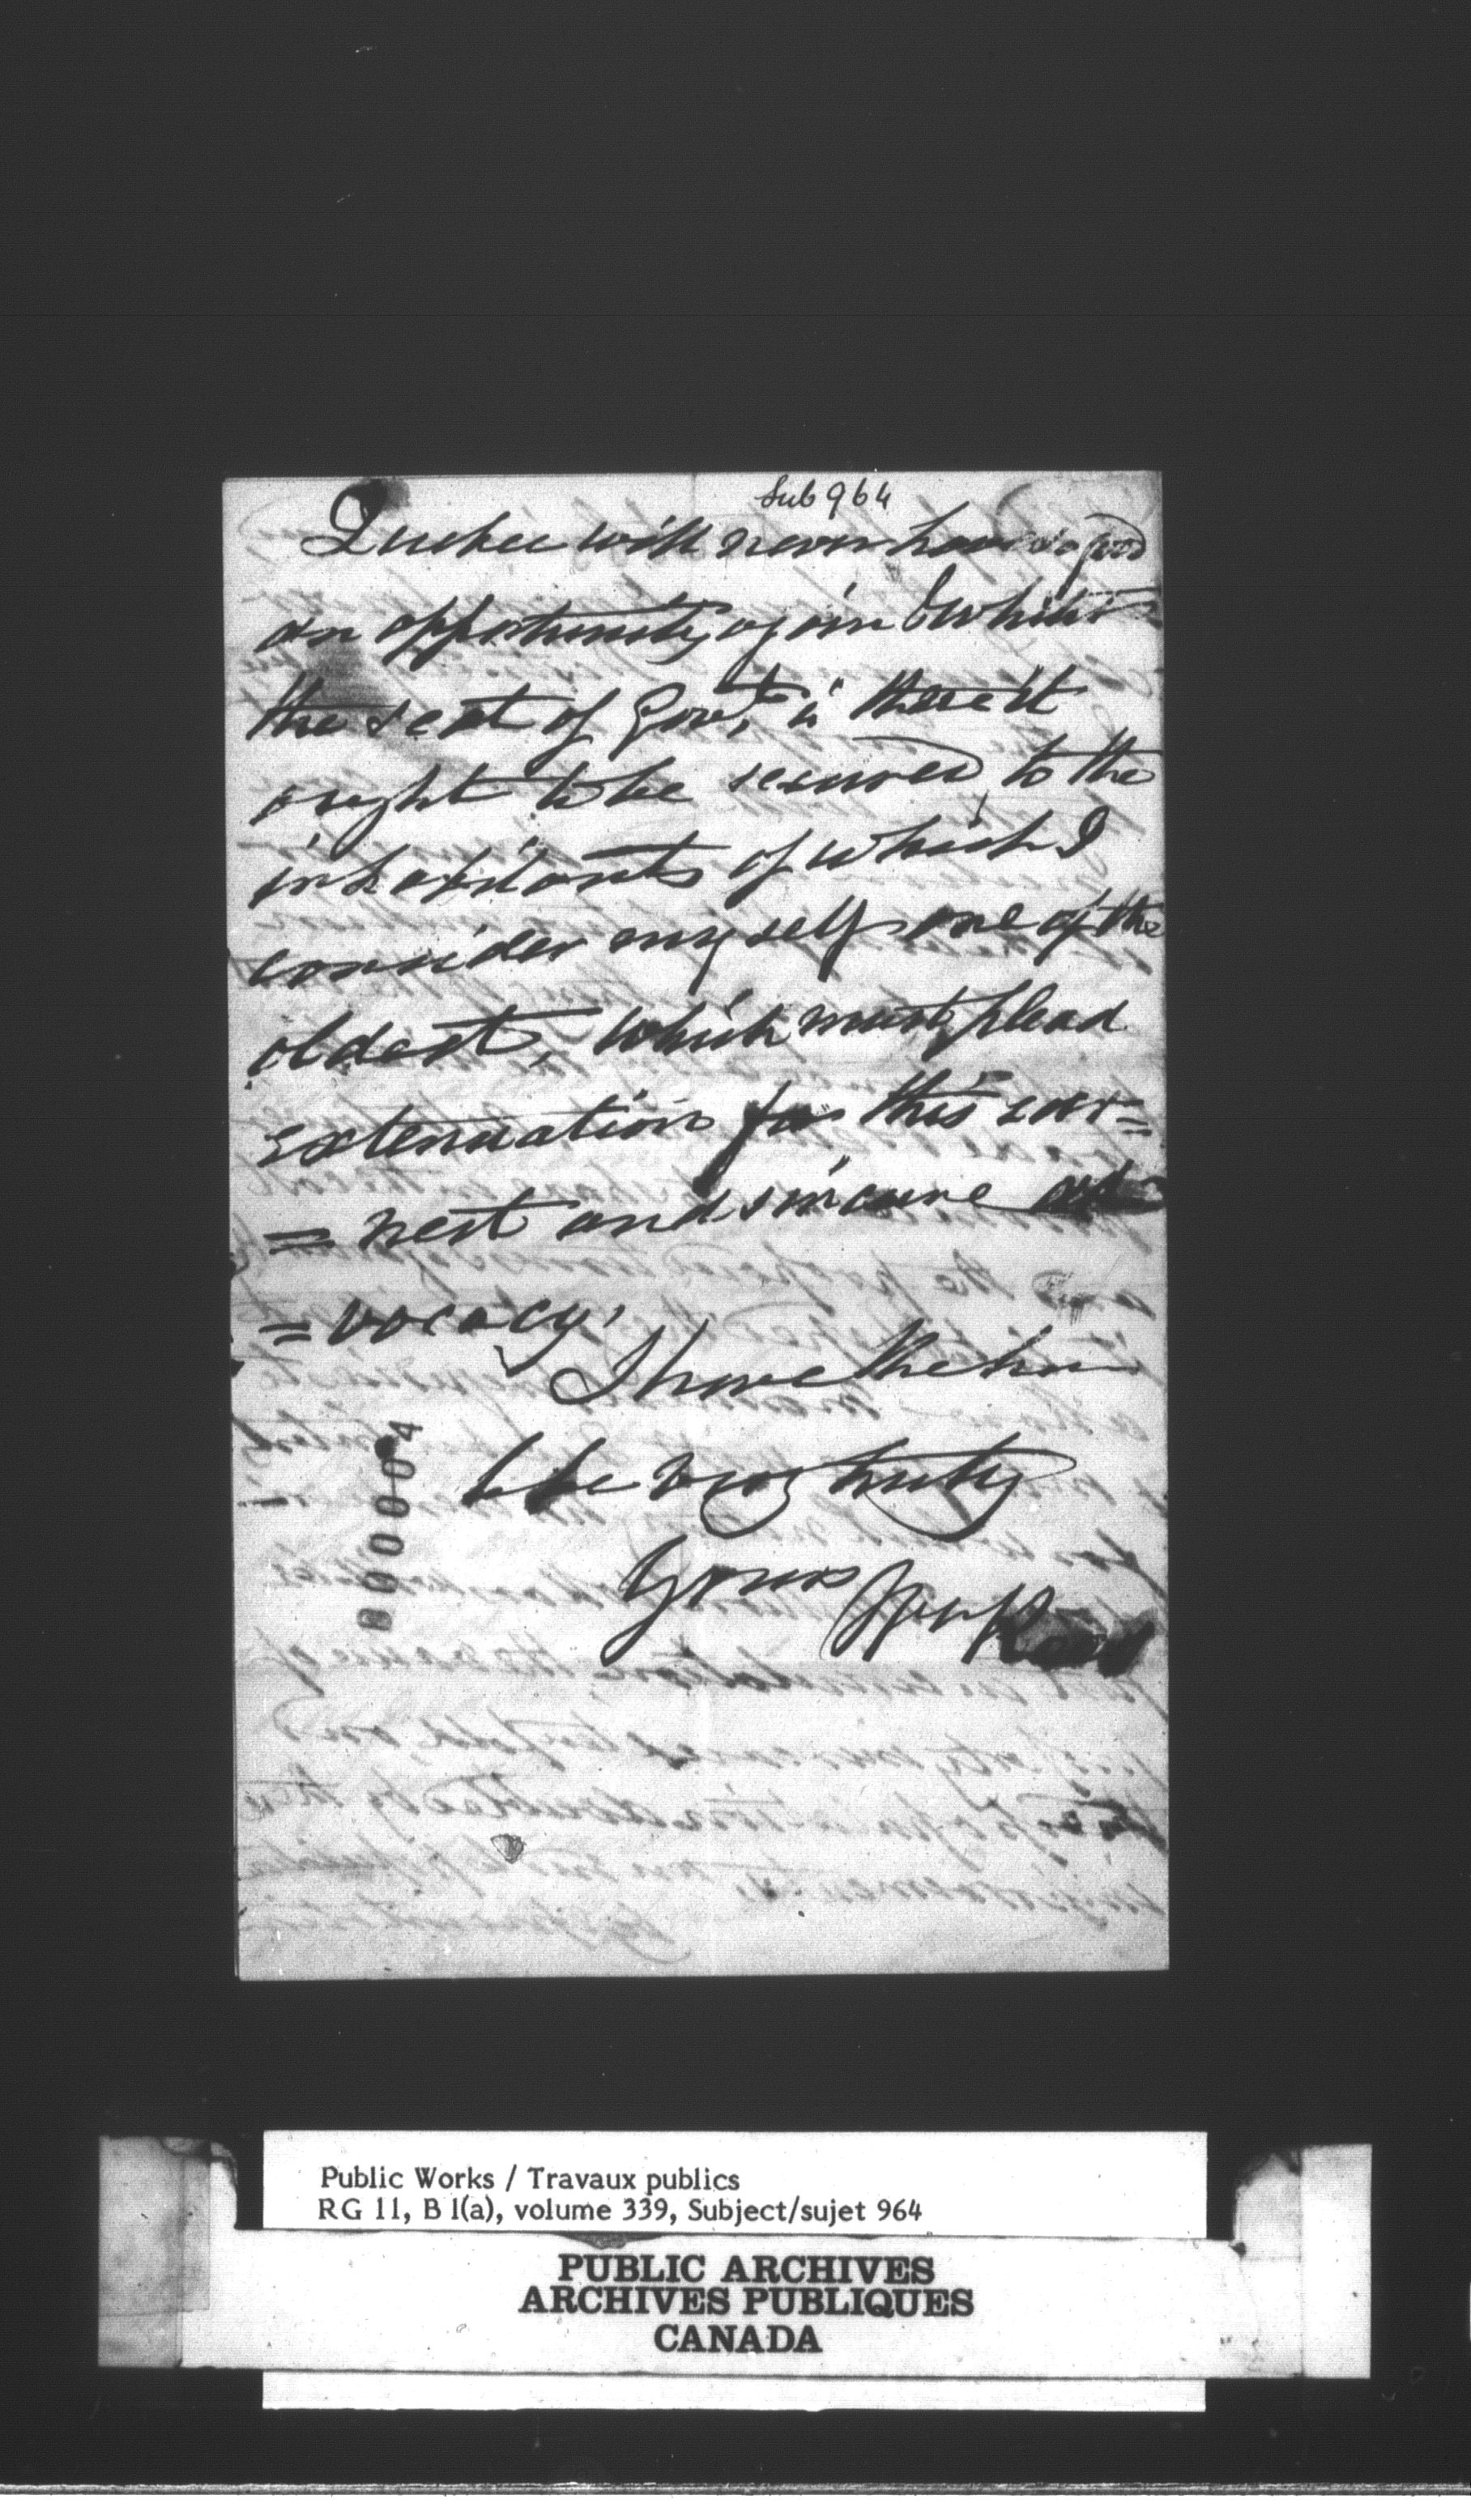 Sub 964
Quebec will never have so good
an opportunity again & whilst
the seat of Govt, is there it
ought to be secured, to the
inhabitants of which I
consider myself one of the
oldest, which must plead
extenuation for this ear=
= nest and sincere ad
= vocacy.
I have the hon
to be very truly
Yours
000004
Public Works / Travaux publics
RG 11, B 1(a), volume 339, Subject/sujet 964
PUBLIC ARCHIVES
ARCHIVES PUBLIQUES
CANADA